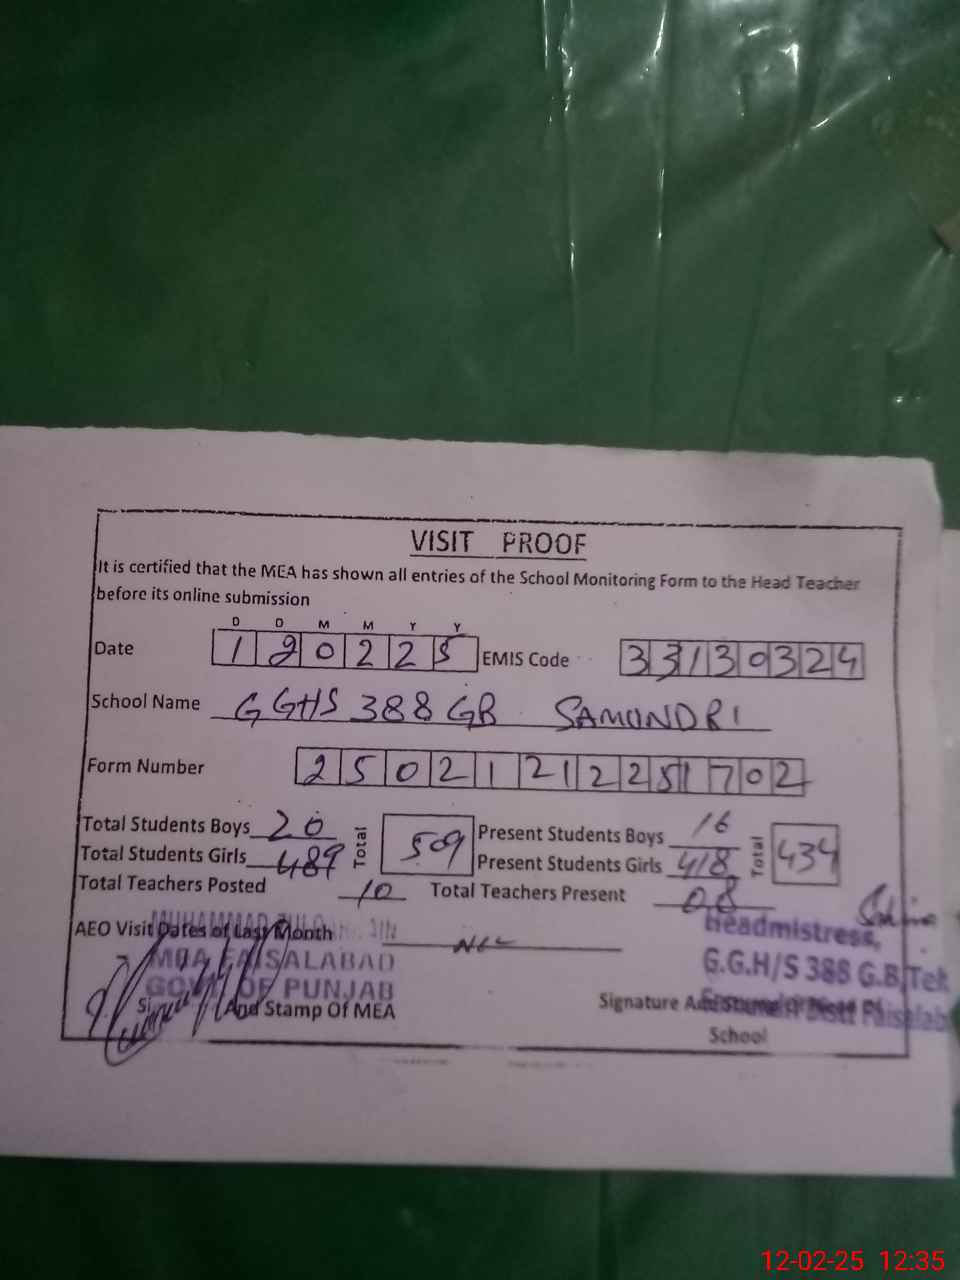 VISIT PROOF
It is certified that the MEA has shown all entries of the School Monitoring Form to the Head Teacher
before its online submission
D D M M Y Y
Date 1 2 0 2 2 5 EMIS Code 3 3 1 3 0 3 2 4
School Name GGHS 388 GB SAMUNDRI
Form Number 2 5 0 2 1 2 1 2 2 5 1 7 0 2
Total Students Boys 20 Total 509 Present Students Boys 16 Total 434
Total Students Girls 489 Present Students Girls 418
Total Teachers Posted 10 Total Teachers Present 08
AEO Visit Dates of Last Month NIL
MUHAMMAD
MEA FAISALABAD
GOVT OF PUNJAB
And Stamp Of MEA
Headmistress,
G.G.H/S 388 G.B, Teh
Distt Faisalab
Signature And
School
12-02-25 12:35